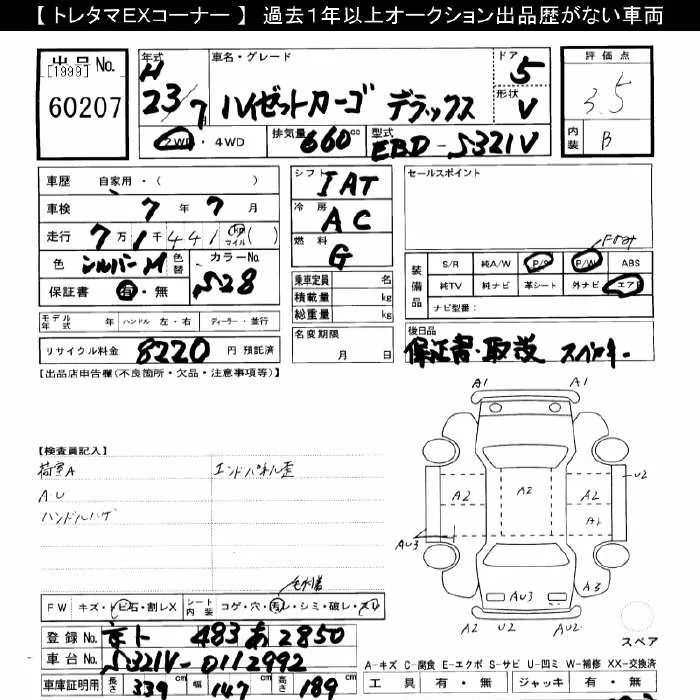 【 トレタマEXコーナー 】 過去1年以上オークション出品歴がない車両
出品 No.
【1999】
60207
年式 車名・グレード ドア 評価点
H 23/7月 ハイゼットカーゴ デラックス 5 3.5
形状 V
2WD・4WD 排気量 660cc 型式 EBD-S321V 内装 B
車歴 自家用・( ) シフト IAT セールスポイント
車検 7年7月 冷房 AC
走行 7万1千441km マイル ( ) 燃料 G
色 シルバーM 色替 カラーNo. S28
保証書 有・無
装備品 S/R 純A/W P/S P/W ABS
純TV 純ナビ 革シート 外ナビ エアB
ナビ型番:
乗車定員 名
積載量 kg
総重量 kg
モデル年式 年 ハンドル 左・右 ディーラー・並行
名変期限 月 日
後日品
保証書・取説 スペアキー
リサイクル料金 8220 円 預託済
【出品店申告欄(不良箇所・欠品・注意事項等)】
【検査員記入】
荷室A エンドパネル歪
A.U
ハンドルハゲ
A1 A1
U2
A2 A2 A2
A1
AU3
AU3 A3
A2 U2 AU2
FW キズ・トビ石・割レX シート内装 コゲ・穴・汚レ・シミ・破レ・スレ
登録 No. 483 あ 2850
車台 No. S321V-0112992
車庫証明用 長さ 339 幅 147 高さ 189
スペア
A-キズ C-腐食 E-エクボ S-サビ U-凹ミ W-補修 XX-交換済
工具 有・無 ジャッキ 有・無